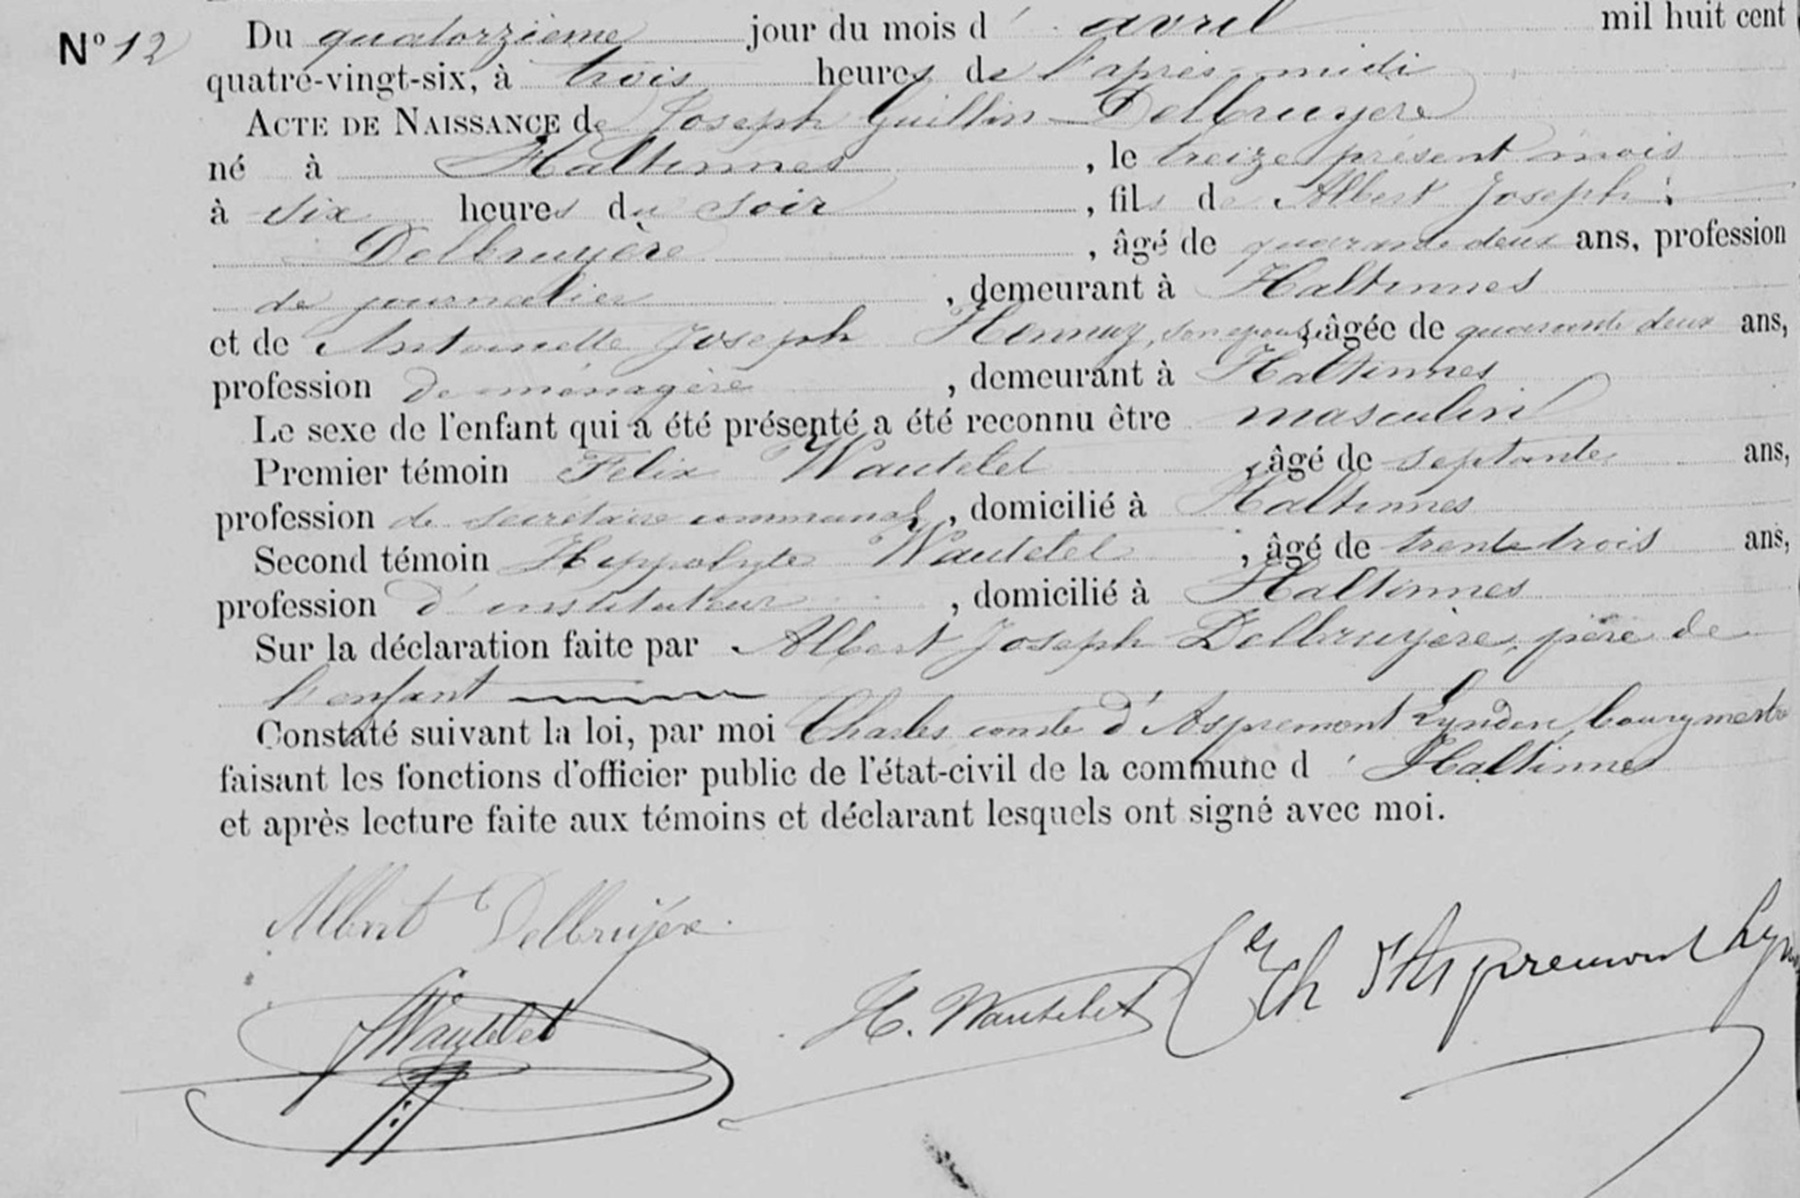 N° 12
Du quatorzième jour du mois d' avril mil huit cent
quatre-vingt-six, à trois heures de l'après-midi
ACTE DE NAISSANCE de Joseph Guillin Delbruyère
né à Haltinnes, le treize présent mois
à six heures du soir, fils de Albert Joseph
Delbruyère, âgé de quarante deux ans, profession
de journalier, demeurant à Haltinnes
et de Antoinette Joseph Hennuy, son épouse, âgée de quarante deux ans,
profession de ménagère, demeurant à Haltinnes
Le sexe de l'enfant qui a été présenté a été reconnu être masculin
Premier témoin Felix Wautelet, âgé de septante ans,
profession de secrétaire communal, domicilié à Haltinnes
Second témoin Hippolyte Wautelet, âgé de trente trois ans,
profession d'instituteur, domicilié à Haltinnes
Sur la déclaration faite par Albert Joseph Delbruyère, père de
l'enfant
Constaté suivant la loi, par moi Charles comte d'Aspremont Lynden, bourgmestre
faisant les fonctions d'officier public de l'état-civil de la commune d'Haltinnes
et après lecture faite aux témoins et déclarant lesquels ont signé avec moi.
Albert Delbruyère.
F Wautelet
H. Wautelet
Cte Ch d'Aspremont Lyn